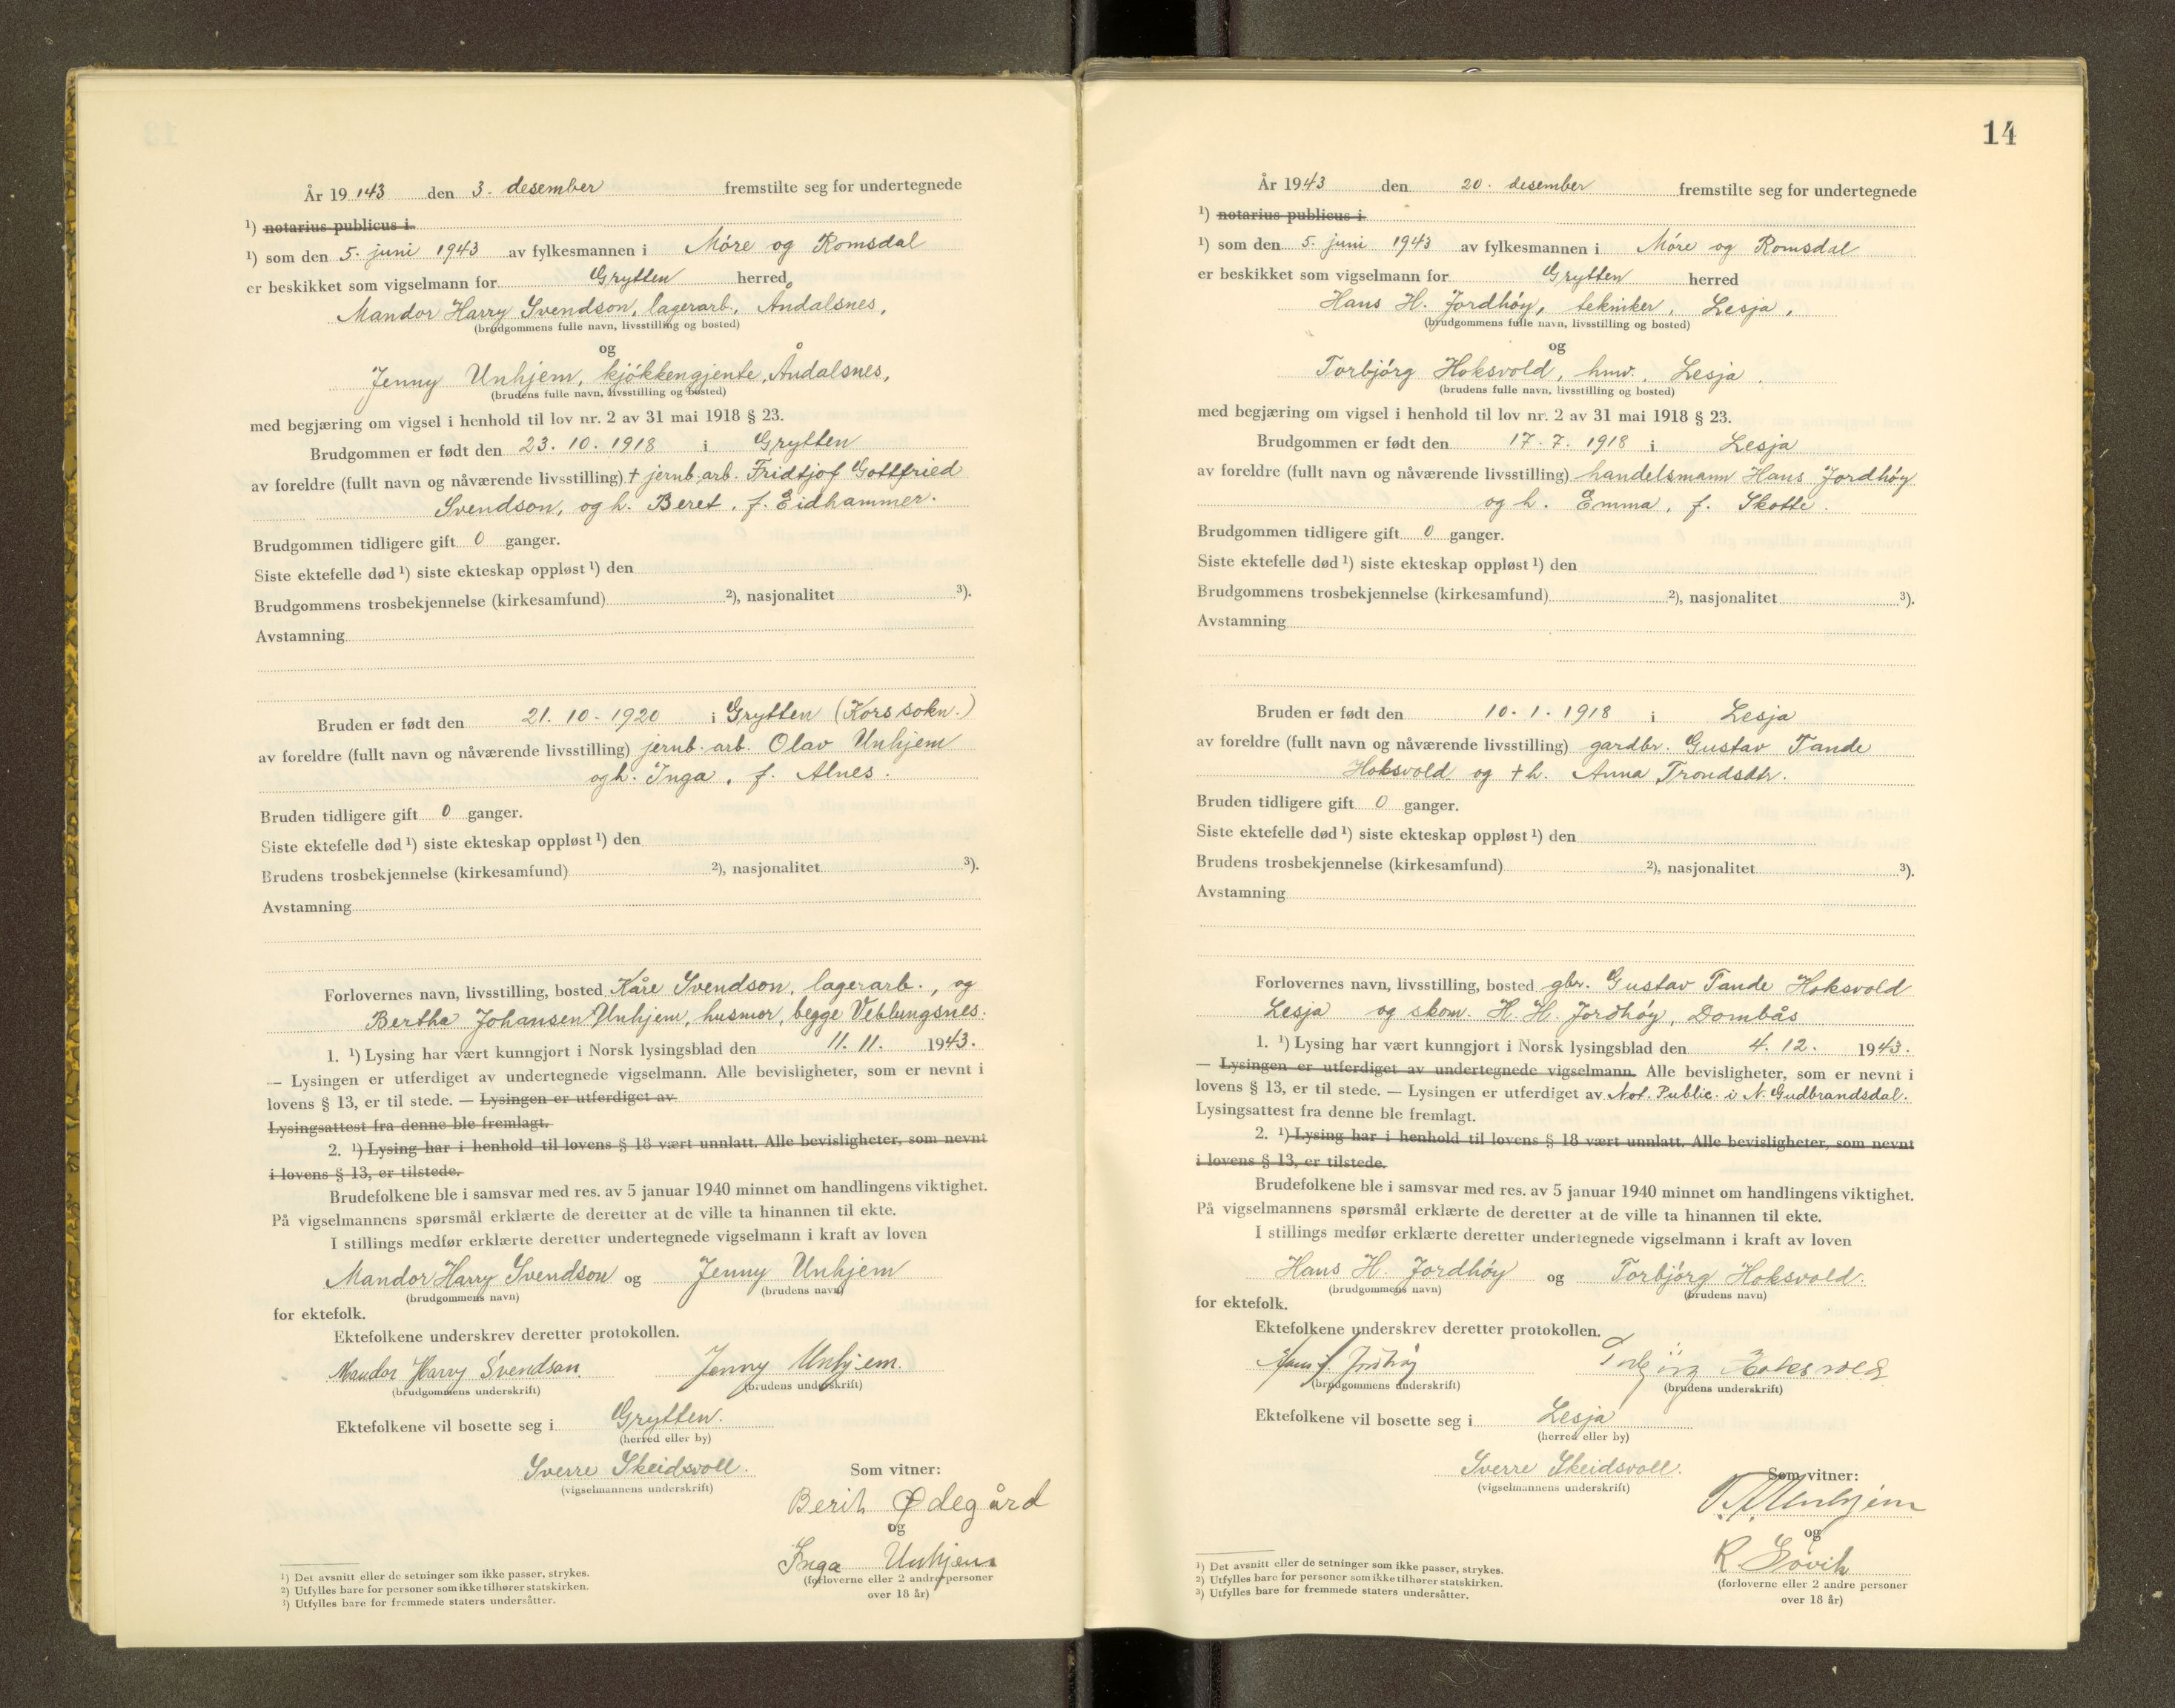 År 19 143 den 3. desember fremstilte seg for undertegnede
¹) notarius publicus i
¹) som den 5. juni 1943 av fylkesmannen i Móre og Romsdal
er beskikket som vigselmann for Grytten herred
Mandor Harry Svendson, lagerarb., Åndalsnes,
(brudgommens fulle navn, livsstilling og bosted)
og
Jenny Unhjem, kjókkengjente, Åndalsnes,
(brudens fulle navn, livsstilling og bosted)
med begjæring om vigsel i henhold til lov nr. 2 av 31 mai 1918 § 23.
Brudgommen er født den 23. 10. 1918 i Grytten
av foreldre (fullt navn og nåværende livsstilling) † jernb.arb. Fridtjof Gottfried
Svendson, og h. Beret, f. Eidhammer.
Brudgommen tidligere gift 0 ganger.
Siste ektefelle død ¹) siste ekteskap oppløst ¹) den
Brudgommens trosbekjennelse (kirkesamfund) ²), nasjonalitet ³).
Avstamning
Bruden er født den 21. 10. 1920 i Grytten (Kors sokn.)
av foreldre (fullt navn og nåværende livsstilling) jernb. arb. Olav Unhjem
og h. Inga, f. Alnes.
Bruden tidligere gift 0 ganger.
Siste ektefelle død ¹) siste ekteskap oppløst ¹) den
Brudens trosbekjennelse (kirkesamfund) ²), nasjonalitet ³).
Avstamning
Forlovernes navn, livsstilling, bosted Kåre Svendson, lagerarb., og
Bertha Johansen Unhjem, husmor, begge Veblungsnes.
1. ¹) Lysing har vært kunngjort i Norsk lysingsblad den 11. 11. 1943.
— Lysingen er utferdiget av undertegnede vigselmann. Alle bevisligheter, som er nevnt i
lovens § 13, er til stede. — Lysingen er utferdiget av
Lysingsattest fra denne ble fremlagt.
2. ¹) Lysing har i henhold til lovens § 18 vært unnlatt. Alle bevisligheter, som nevnt
i lovens § 13, er tilstede.
Brudefolkene ble i samsvar med res. av 5 januar 1940 minnet om handlingens viktighet.
På vigselmannens spørsmål erklærte de deretter at de ville ta hinannen til ekte.
I stillings medfør erklærte deretter undertegnede vigselmann i kraft av loven
Mandor Harry Svendson og Jenny Unhjem
(brudgommens navn) (brudens navn)
for ektefolk.
Ektefolkene underskrev deretter protokollen.
Mandor Harry Svendson. Jenny Unhjem.
(brudgommens underskrift) (brudens underskrift)
Ektefolkene vil bosette seg i Grytten.
(herred eller by)
Sverre Skeidsvoll. Som vitner:
(vigselmannens underskrift)
Berit Ødegård
og
Inga Unhjem
(forloverne eller 2 andre personer
over 18 år)
¹) Det avsnitt eller de setninger som ikke passer, strykes.
²) Utfylles bare for personer som ikke tilhører statskirken.
³) Utfylles bare for fremmede staters undersåtter.
14
År 1943 den 20. desember fremstilte seg for undertegnede
¹) notarius publicus i
¹) som den 5. juni 1943 av fylkesmannen i Móre og Romsdal
er beskikket som vigselmann for Grytten herred
Hans H. Jordhóy, tekniker, Lesja,
(brudgommens fulle navn, livsstilling og bosted)
og
Torbjórg Hoksvold, hmv., Lesja.
(brudens fulle navn, livsstilling og bosted)
med begjæring om vigsel i henhold til lov nr. 2 av 31 mai 1918 § 23.
Brudgommen er født den 17. 7. 1918 i Lesja
av foreldre (fullt navn og nåværende livsstilling) handelsmann Hans Jordhóy
og h. Emma, f. Skotte.
Brudgommen tidligere gift 0 ganger.
Siste ektefelle død ¹) siste ekteskap oppløst ¹) den
Brudgommens trosbekjennelse (kirkesamfund) ²), nasjonalitet ³).
Avstamning
Bruden er født den 10. 1. 1918 i Lesja
av foreldre (fullt navn og nåværende livsstilling) gardbr. Gustav Tande
Hoksvold og † h. Anna Trondsdtr.
Bruden tidligere gift 0 ganger.
Siste ektefelle død ¹) siste ekteskap oppløst ¹) den
Brudens trosbekjennelse (kirkesamfund) ²), nasjonalitet ³).
Avstamning
Forlovernes navn, livsstilling, bosted gbr. Gustav Tande Hoksvold
Lesja og skom. H. H. Jordhóy, Dombås
1. ¹) Lysing har vært kunngjort i Norsk lysingsblad den 4. 12. 1943.
— Lysingen er utferdiget av undertegnede vigselmann. Alle bevisligheter, som er nevnt i
lovens § 13, er til stede. — Lysingen er utferdiget av Not. Public. i N. Gudbrandsdal.
Lysingsattest fra denne ble fremlagt.
2. ¹) Lysing har i henhold til lovens § 18 vært unnlatt. Alle bevisligheter, som nevnt
i lovens § 13, er tilstede.
Brudefolkene ble i samsvar med res. av 5 januar 1940 minnet om handlingens viktighet.
På vigselmannens spørsmål erklærte de deretter at de ville ta hinannen til ekte.
I stillings medfør erklærte deretter undertegnede vigselmann i kraft av loven
Hans H. Jordhóy og Torbjórg Hoksvold.
(brudgommens navn) (brudens navn)
for ektefolk.
Ektefolkene underskrev deretter protokollen.
Hans H. Jordhöy Torbjörg Hoksvold
(brudgommens underskrift) (brudens underskrift)
Ektefolkene vil bosette seg i Lesja
(herred eller by)
Sverre Skeidsvoll. Som vitner:
(vigselmannens underskrift)
Unhjem
og
R.
(forloverne eller 2 andre personer
over 18 år)
¹) Det avsnitt eller de setninger som ikke passer, strykes.
²) Utfylles bare for personer som ikke tilhører statskirken.
³) Utfylles bare for fremmede staters undersåtter.